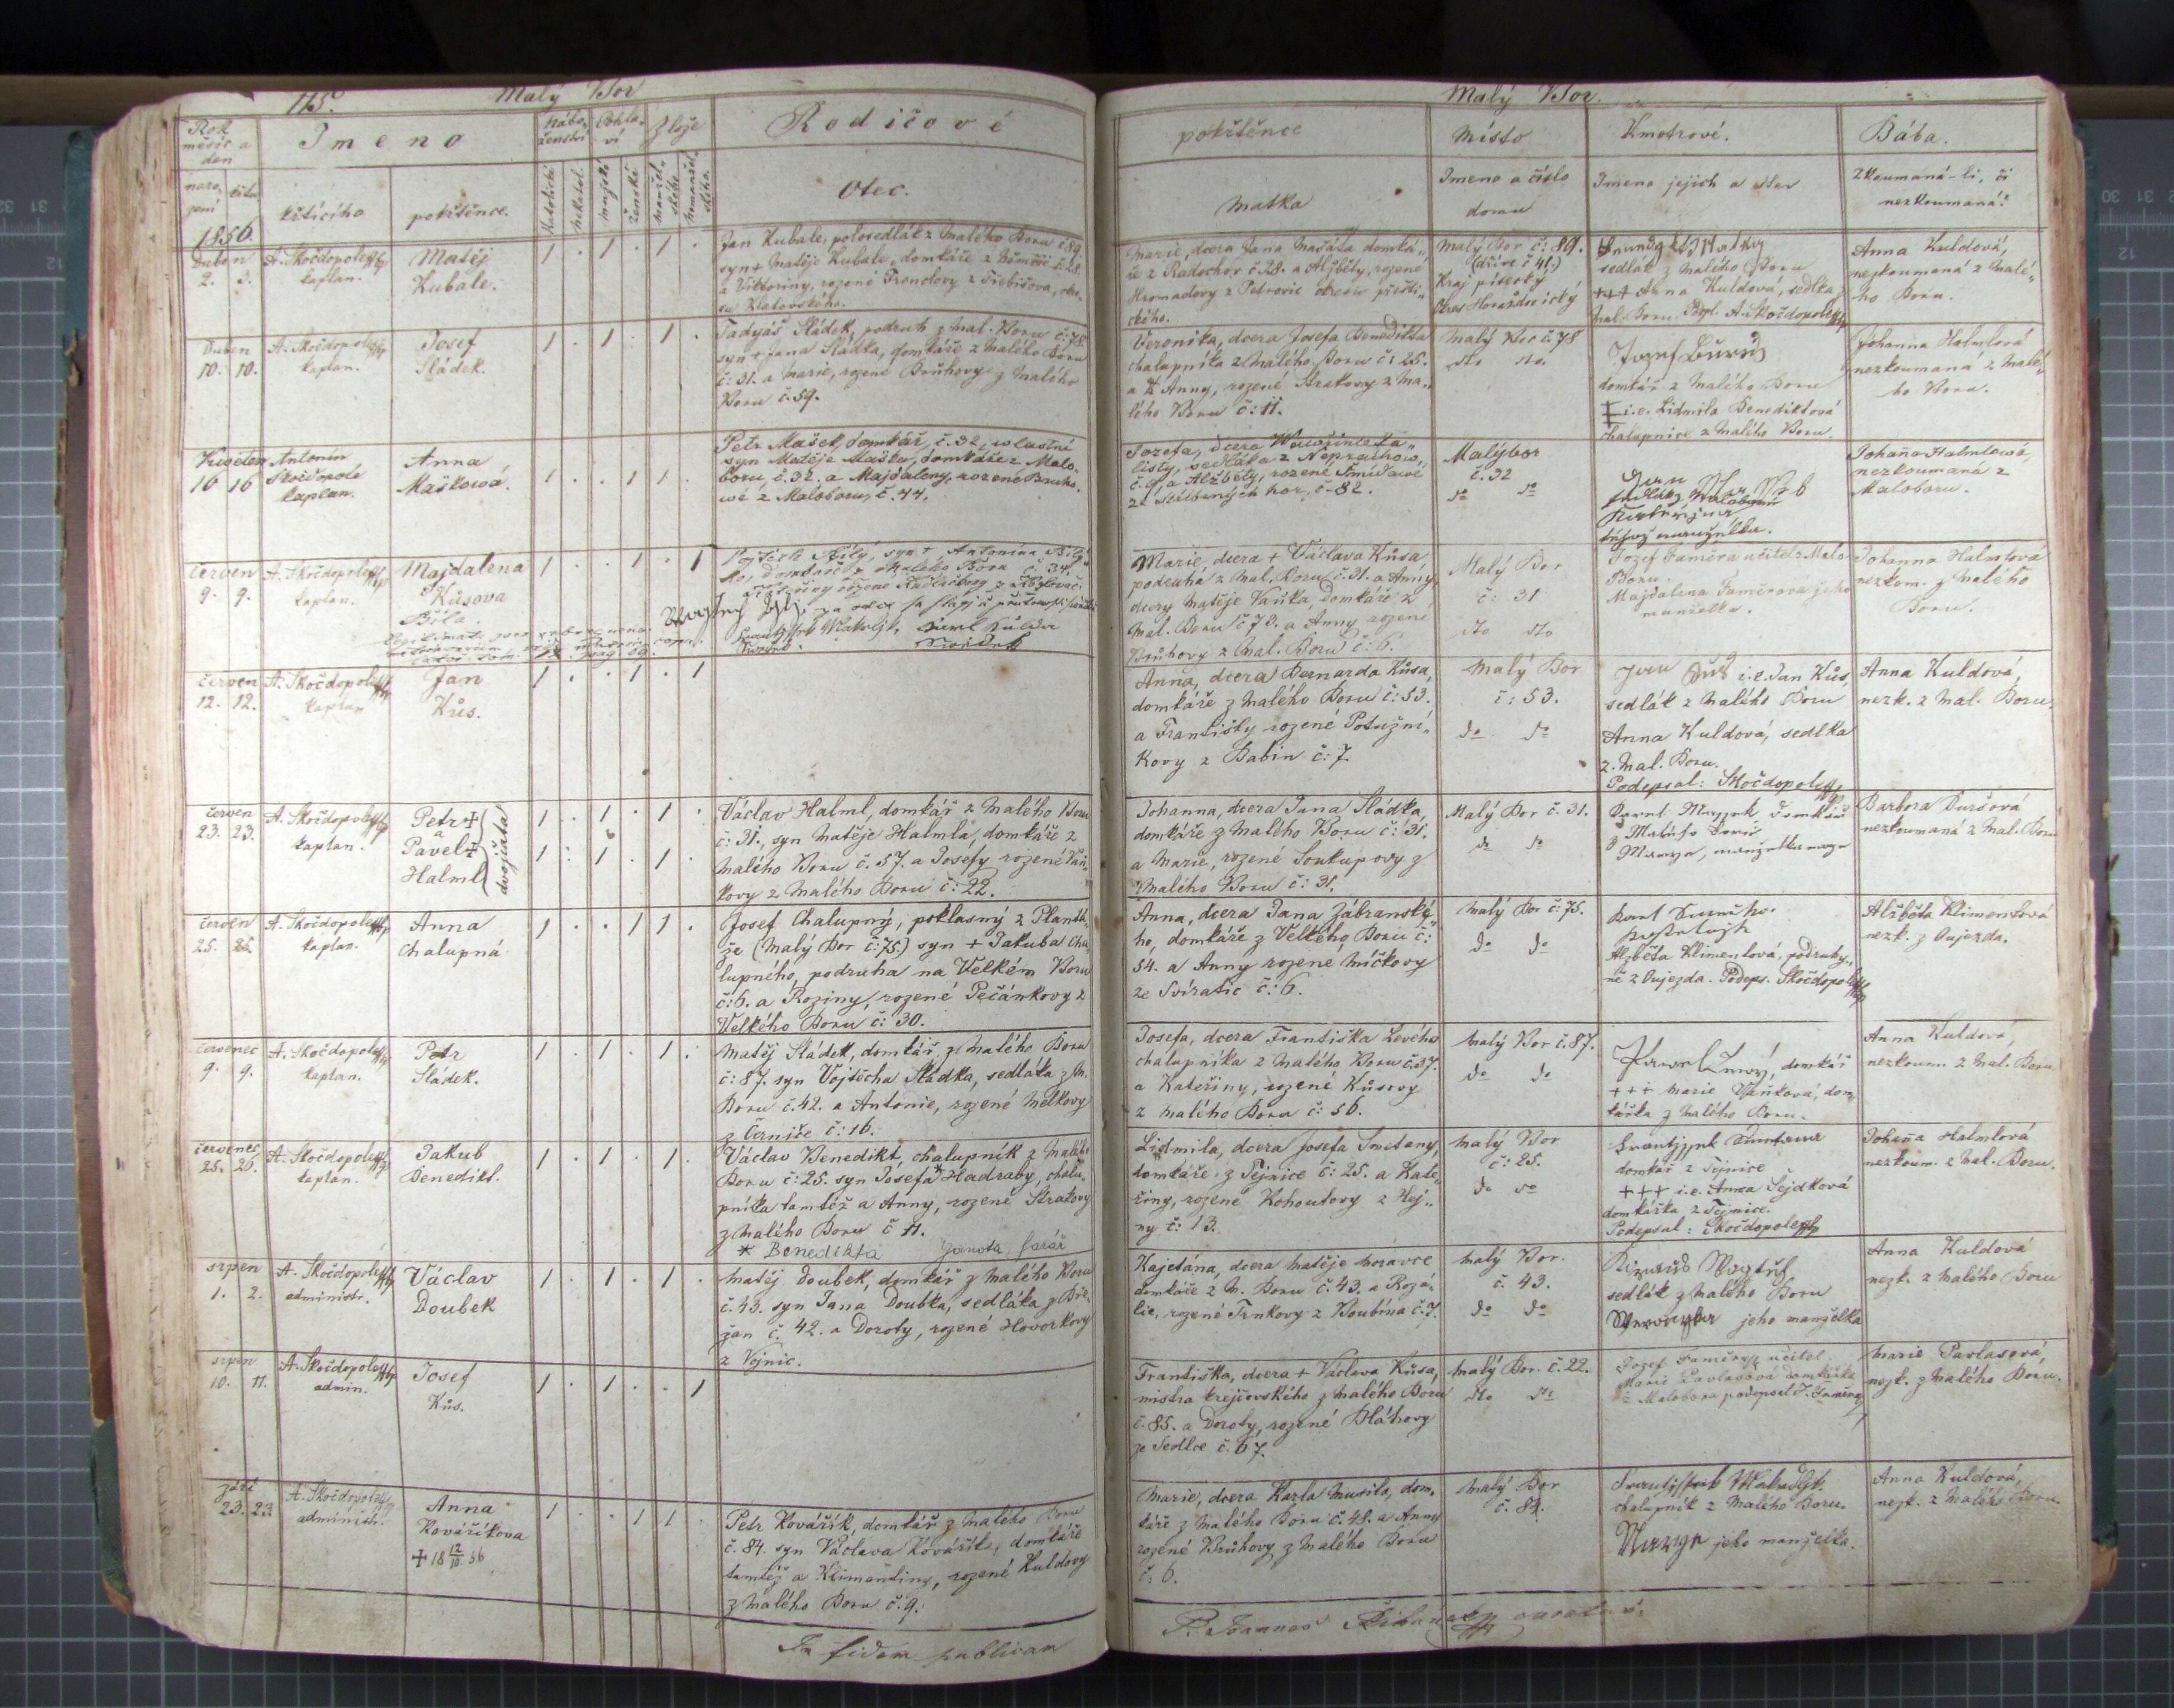 115.
Malý Bor
Rok
měsíc a
den
Jmeno
Nábo-
ženství
Pohla-
ví
Z lože
Rodičové
naro-
zení
křtu
křtícího
pokřtěnce.
Katolické
nekatol.
mužské
ženské
manžel-
ského
nemanžel-
ského.
Otec.
1856.
Duben
2. 3.
A. Skočdopole
kaplan.
Matěj
Kubale.
1 . 1 . 1 .
Jan Kubale, polosedlák z Malého Boru č. 89.
syn + Matěje Kubale, domkáře z
a Viktoriny, rozené z Třebišova, okre-
su Klatovského.
Duben
10. 10.
A. Skočdopole
kaplan.
Josef
Sládek.
1 . 1 . 1 .
Tadyáš Sládek, podruh z Mal. Boru č. 78.
syn + Jana Sládka, domkáře z Malého Boru
č: 31. a Marie, rozené Brůhovy z Malého
Boru č. 59.
Květen
16 16
Antonín
Skočdopole
kaplan.
Anna
Mašková.
1 . . 1 1 .
Petr Mašek, domkář, č. 32, vlastní
syn Matěje Maška, domkáře z Malo-
boru, č. 32. a Majdaleny, rozené Bruho-
wé z Maloboru, č. 44.
červen
9. 9.
A. Skočdopole
kaplan.
Majdalena
Kůsova
Bílá.
1 . . 1 . 1
Vojtěch Bílý, syn + Antonína Bílé-
ho, domkáře z Malého Boru č. 34.
červen
12. 12.
A. Skočdopole
kaplan
Jan
Kůs.
1 . 1 . 1
červen
23. 23.
A. Skočdopole
kaplan.
Petr +
a
Pavel +
Halml
dvojčata
1 . 1 . 1 .
1 . 1 . 1 .
Václav Halml, domkář z Malého Boru
č: 31., syn Matěje Halmla, domkáře z
Malého Boru č. 57. a Josefy rozené Vaň-
kovy z Malého Boru č: 22.
červen
25. 25.
A. Skočdopole
kaplan.
Anna
Chalupná
1 . . 1 1 .
Josef Chalupný, poklasný z Plani-
že (Malý Bor č: 75.) syn + Jakuba Cha-
lupného, podruha na Velkém Boru
č: 6. a Roziny, rozené Pečánkovy z
Velkého Boru č: 30.
červenec
9. 9.
A. Skočdopole
kaplan.
Petr
Sládek.
1 . 1 . 1 .
Matěj Sládek, domkář z Malého Boru
č: 87. syn Vojtěcha Sládka, sedláka z M.
Boru č. 42. a Antonie, rozené Melkovy
z Černíče č: 16.
červenec
25. 26.
A. Skočdopole
kaplan.
Jakub
Benedikt.
1 . 1 . 1 .
Václav Benedikt, chalupník z Malého
Boru č: 25. syn Josefa * Hadraby, chalu-
pníka tamtéž a Anny, rozené Strakovy
z Malého Boru č 11.
* Benedikta Janota, farář
srpen
1. 2.
A. Skočdopole
administr.
Václav
Doubek
1 . 1 . 1 .
Matěj Doubek, domkář z Malého Boru
č. 43. syn Jana Doubka, sedláka z Bře-
žan č. 42. a Doroty, rozené Hovorkovy
z Vojnic.
srpen
10. 11.
A. Skočdopole
admin.
Josef
Kůs.
1 . 1 . . 1
září
23. 23
A. Skočdopole
administr.
Anna
Kovaříkova
+ 18 12/10 56
1 . . 1 1 .
Petr Kovářík, domkář z Malého Boru
č. 84. syn Václava Kováříka, domkáře
tamtéž a Klimentiny, rozené Kuldovy
z Malého Boru č. 9.
In fidem publicam
Malý Bor.
pokřtěnce
Místo
Kmotrové.
Bába.
Matka
Jmeno a číslo
domu
Jmeno jejich a stav
Zkoumaná-li, či
nezkoumaná?
Marie, dcera Jana Mašáta domká-
ře z Radochov č. 28. a Alžběty, rozené
Hromadovy z Petrovic okresu
Malý Bor č: 89.
(dříve č 41.)
Kraj písecký
Okres Horažďovický
sedlák z Malého Boru
+++ Anna Kuldová, sedlka z
Mal. Boru. Pdpl. A. Skočdopole
Anna Kuldová,
nezkoumaná z Malé-
ho Boru.
Veronika, dcera Josefa Benedikta
chalupníka z Malého Boru č: 25.
a + Anny, rozené Strakovy z Ma-
lého Boru č: 11.
Malý Bor č. 78
dto dto.
Jozef Bureš
domkář z Malého Boru
+ i. e. Lidmila Benediktová
chalupnice z Malého Boru.
Johanna Halmlová
nezkoumaná z Malé-
ho Boru.
Jozefa, dcera Wawřince Ka-
listy, sedláka z Neprachow,
č. 9 a Alžběty, rozené Šmidtowé
ze stříbrných hor, č. 82.
Malýbor
č. 32
do do
Jan
sedlák z Maloboru
Kateřina
Johana Halmlowá,
nezkoumaná z
Maloboru.
Marie, dcera + Václava Kůsa
podruha z Mal. Boru č. 31. a Anny
dcery Matěje Vaňka, domkáře z
Mal. Boru č 73. a Anny rozené
Brůhovy z Mal. Boru č: 6.
Malý Bor
č: 31
dto dto
Jozef Faměra učitel z Malo
Boru.
Majdalena Faměrova jeho
manželka.
Johanna Halmlová
nezkoum. z Malého
Boru.
Anna, dcera Bernarda Kůsa,
domkáře z Malého Boru č: 53.
a Františky rozené Potužní-
kovy z Babin č: 7.
Malý Bor
č: 53.
do do
Jan Kůs i. e. Jan Kůs
sedlák z Malého Boru
Anna Kuldová, sedlka
z. Mal. Boru.
Podepsal: Skočdopole
Anna Kuldová,
nezk. z Mal. Boru.
Johanna, dcera Jana Sládka,
domkáře z Malého Boru č: 31.
a Marie, rozené Soukupovy z
Malého Boru č: 31.
Malý Bor č. 31.
do do
Barbora Buršová
nezkoumaná z Mal. Boru
Anna, dcera Jana Zábranské-
ho, domkáře z Velkého Boru č:
54. a Anny rozené Míčkovy
ze Svíratic č: 6.
Malý Bor č: 75.
do do
Alžběta Klimentová, podruhy-
ně z Oujezda. Podeps. Skočdopole
Alžběta Klimentová
nezk. z Oujezda.
Josefa, dcera Františka Levého
chalupníka z Malého Boru č. 37.
a Kateřiny, rozené Kůsovy
z Malého Boru č: 56.
Malý Bor č. 87.
do do
Pawel Lewý, domkář
+++ Marie Vaňková, dom-
kářka z Malého Boru.
Anna Kuldová,
nezkoum. z Mal. Boru.
Lidmila, dcera Josefa Smetany,
domkáře z Týnice č: 25. a Kate-
řiny, rozené Kohoutovy z Hej-
ny č: 13.
Malý Bor
č: 25.
do do
domkář z Týnice
+++ i. e. Anna Sejdková
domkářka z Týnice.
Podepsal: Skočdopole
Johana Halmlová
nezkoum. z Mal. Boru.
Kajetána, dcera Matěje Moravce
domkáře z M. Boru č. 43. a Rozá-
lie, rozené Trnkovy z Boubína č. 7.
Malý Bor.
č. 43.
do do
sedlák z Malého Boru
jeho manželka
Anna Kuldová
nezk. z Malého Boru
Františka, dcera + Václava Kůsa,
mistra krejčovského z Malého Boru
č. 85. a Doroty, rozené Bláhovy
ze Sedlce č. 67.
Malý Bor. č. 22.
dto do
Jozef Faměra učitel.
Marie Pavlasová domkářka
z Maloboru podepsal J. Faměra
Marie Pavlasová,
nezk. z Malého Boru.
Marie, dcera Karla Musila, dom-
káře z Malého Boru č. 48. a Anny
rozené Brůhovy z Malého Boru
č. 6.
Malý Bor
č. 84.
chalupník z Malého Boru.
Marye jeho manželka.
Anna Kuldová,
nezk. z Malého Boru.
P. Joannes curatus.